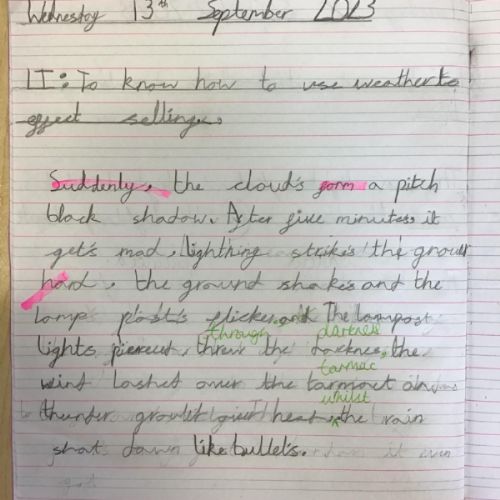 Wednesday 13th September 2023
LI: To know how to use weather to
effect setting.
Suddenly, the cloud's form a pitch
black shadow. After five minutes it
get's mad, lighthing strikes the ground
hard, the ground shakes and the
lamp post's flicker and The lampost
through darkness
lights pierced, threw the darknes, the
tarmac
wind lashed over the tarmout
whilst
thunder the rain
shot down like bullets.